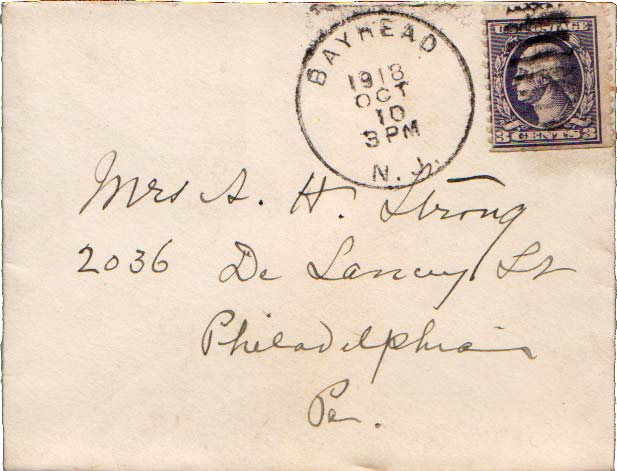 BAYHEAD
1918
OCT
10
3 PM
N.J.
U.S. POSTAGE
3 CENTS 3
Mrs A. H. Strong
2036 De Lancey St
Philadelphia
Pa.